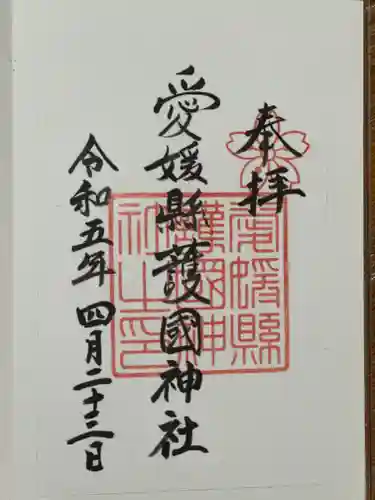 奉拝
愛媛縣護國神社
令和五年四月二十三日
愛媛縣
護國神
社之印